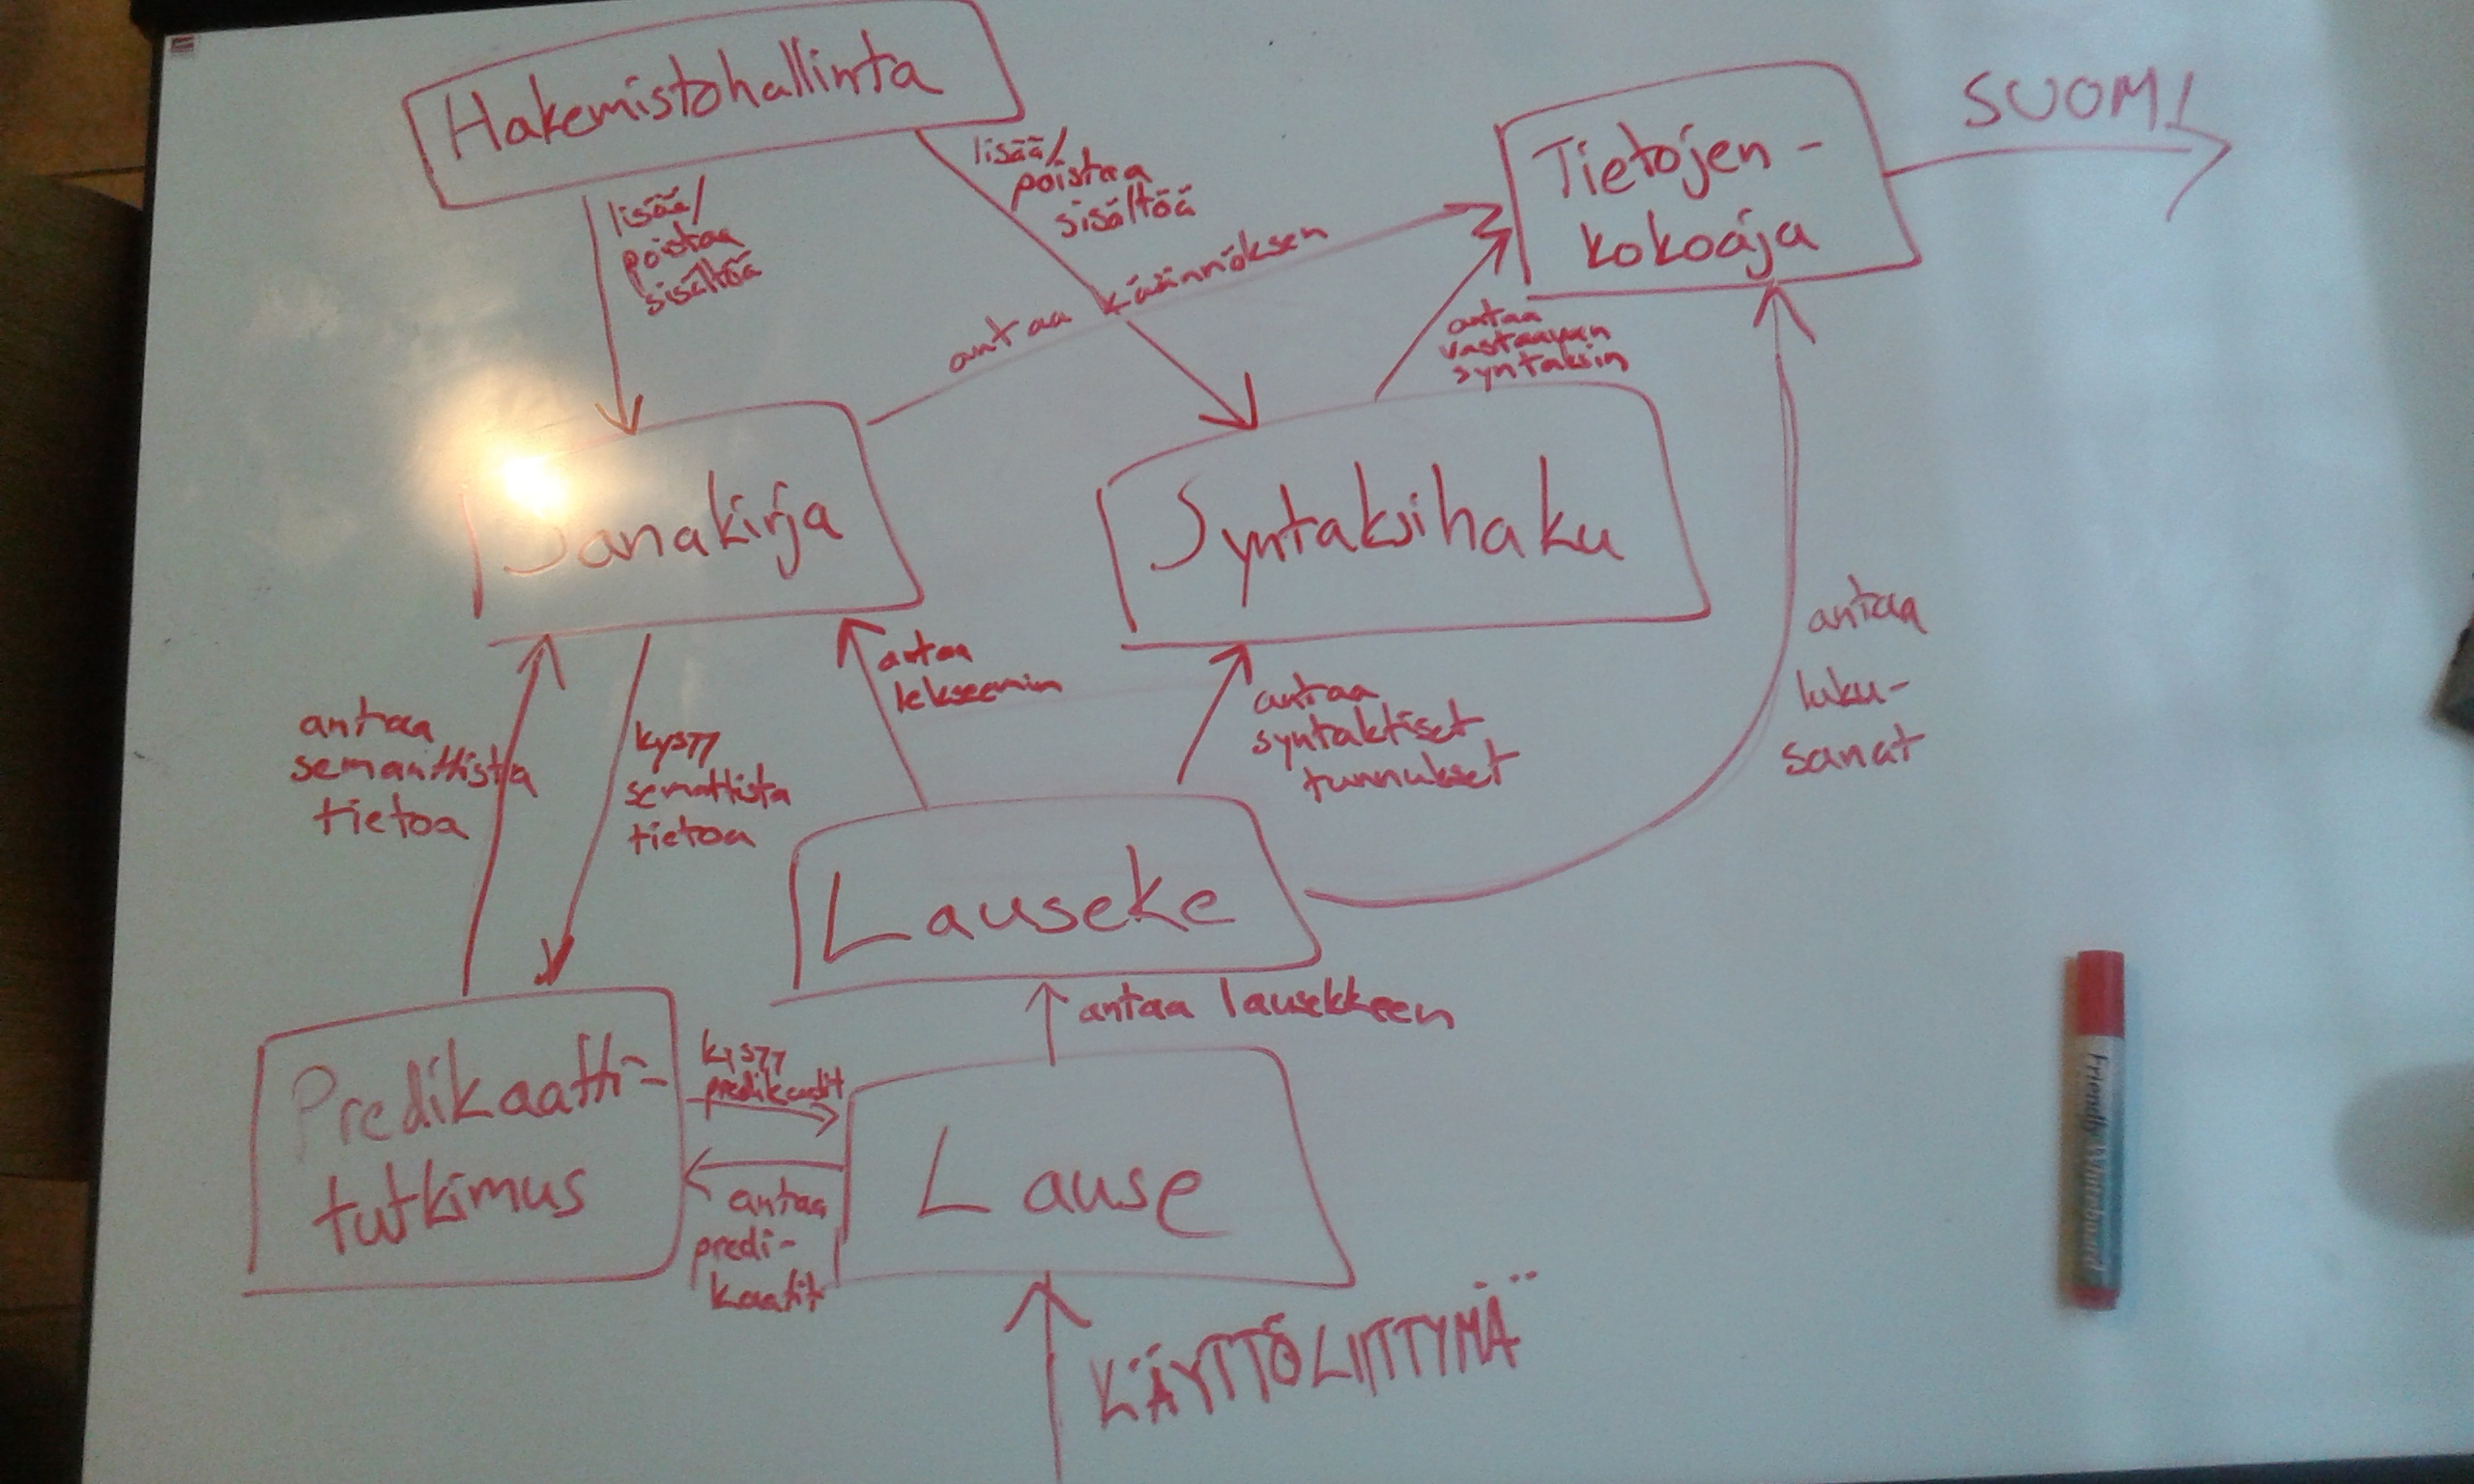 Hakemistohallinta
lisää/
poistaa
sisältöä
lisää/
poistaa
sisältöä
Tietojen-
kokoaja
SUOMI
antaa käännöksen
antaa
vastaavan
syntaksin
Sanakirja
Syntaksihaku
antaa
lekseemin
antaa
syntaktiset
tunnukset
antaa
luku-
sanat
antaa
semanttista
tietoa
kysyy
semattista
tietoa
Lauseke
antaa lausekkeen
Predikaatti-
tutkimus
kysyy
predikaatit
antaa
predi-
kaatit
Lause
KÄYTTÖLIITTYMÄ
Friendly Whiteboard